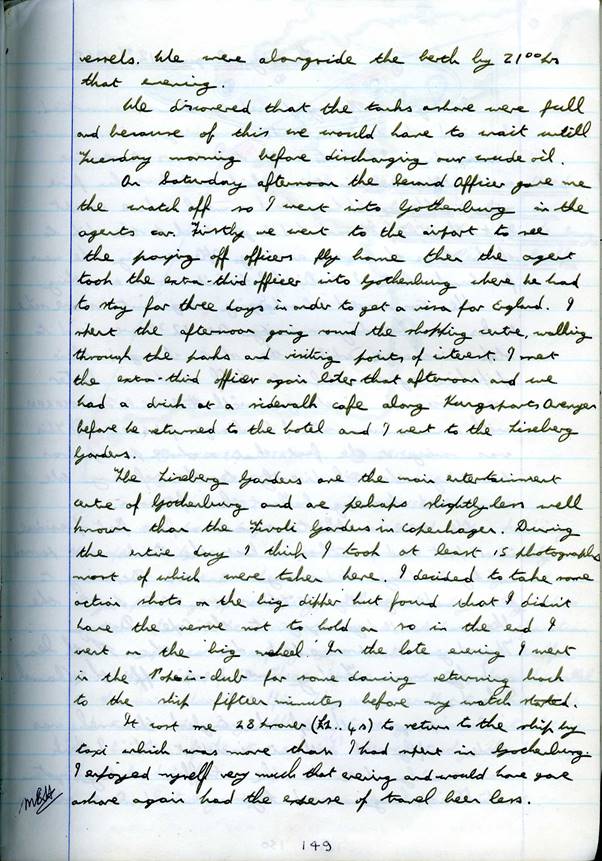 vessels. We were alongside the berth by 21⁰⁰hrs
that evening.
We discovered that the tanks ashore were full
and because of this we would have to wait untill
Tuesday morning before discharging our crude oil.
On Saturday afternoon the Second Officer gave me
the watch off so I went into Gothenburg in the
agents car. Firstly we went to the airport to see
the paying off officers fly home then the agent
took the extra-third officer into Gothenburg where he had
to stay for three days in order to get a visa for England. I
spent the afternoon going round the shopping centre, walking
through the parks and visiting points of interest. I met
the extra-third officer again later that afternoon and we
had a drink at a sidewalk cafe along Kungsports Avengen
before he returned to the hotel and I went to the Liseberg
Gardens.
The Liseberg Gardens are the main entertainment
centre of Gothenburg and are perhaps slightly less well
known than the Tivoli Gardens in Copenhagen. During
the entire day I think I took at least 15 photographs
most of which were taken here. I decided to take some
action shots on the 'big dipper' but found that I didn't
have the nerve not to hold on so in the end I
went on the 'big wheel.' In the late evening I went
in the club for some dancing returning back
to the ship fifteen minutes before my watch started.
It cost me 28 kroner (£2..4s) to return to the ship by
taxi which was more than I had spent in Gothenburg.
I enjoyed myself very much that evening and would have gone
ashore again had the expense of travel been less.
149